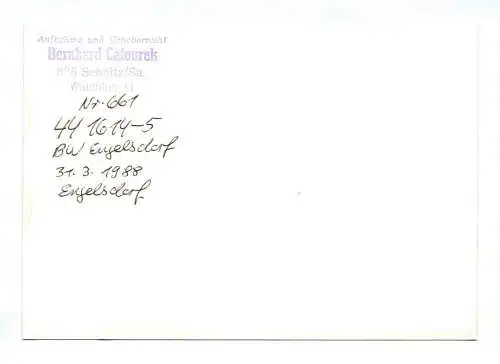 Aufnahme und Urheberrecht
Bernhard Calourek
Sebnitz/Sa.
Nr. 661
44 1614-5
BW Engelsdorf
31. 3. 1988
Engelsdorf